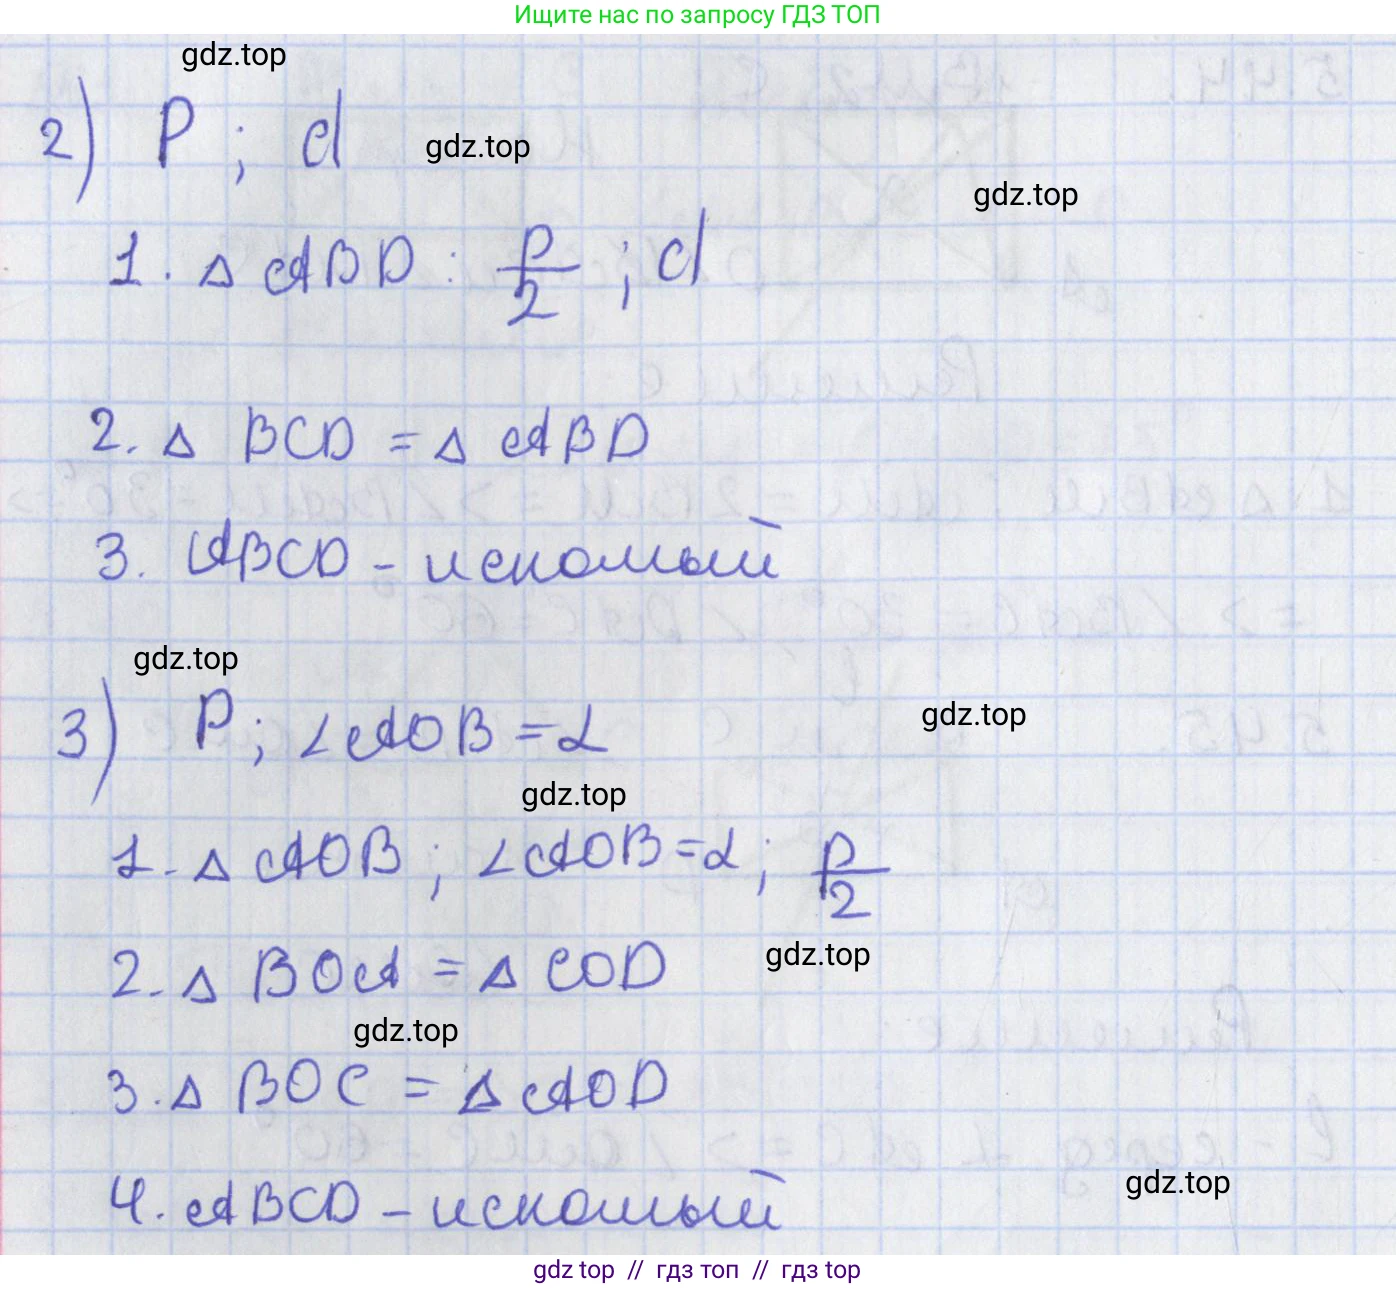 Ищите нас по запросу ГДЗ ТОП
gdz.top
2) P ; d
gdz.top
gdz.top
1. △ ABD : P/2 ; d
2. △ BCD = △ ABD
3. ABCD - искомый
gdz.top
3) P ; ∠AOB = α
gdz.top
gdz.top
1. △ AOB ; ∠AOB = α ; P/2
2. △ BOA = △ COD
gdz.top
gdz.top
3. △ BOC = △ AOD
4. ABCD - искомый
gdz.top
gdz top // гдз топ // гдз top